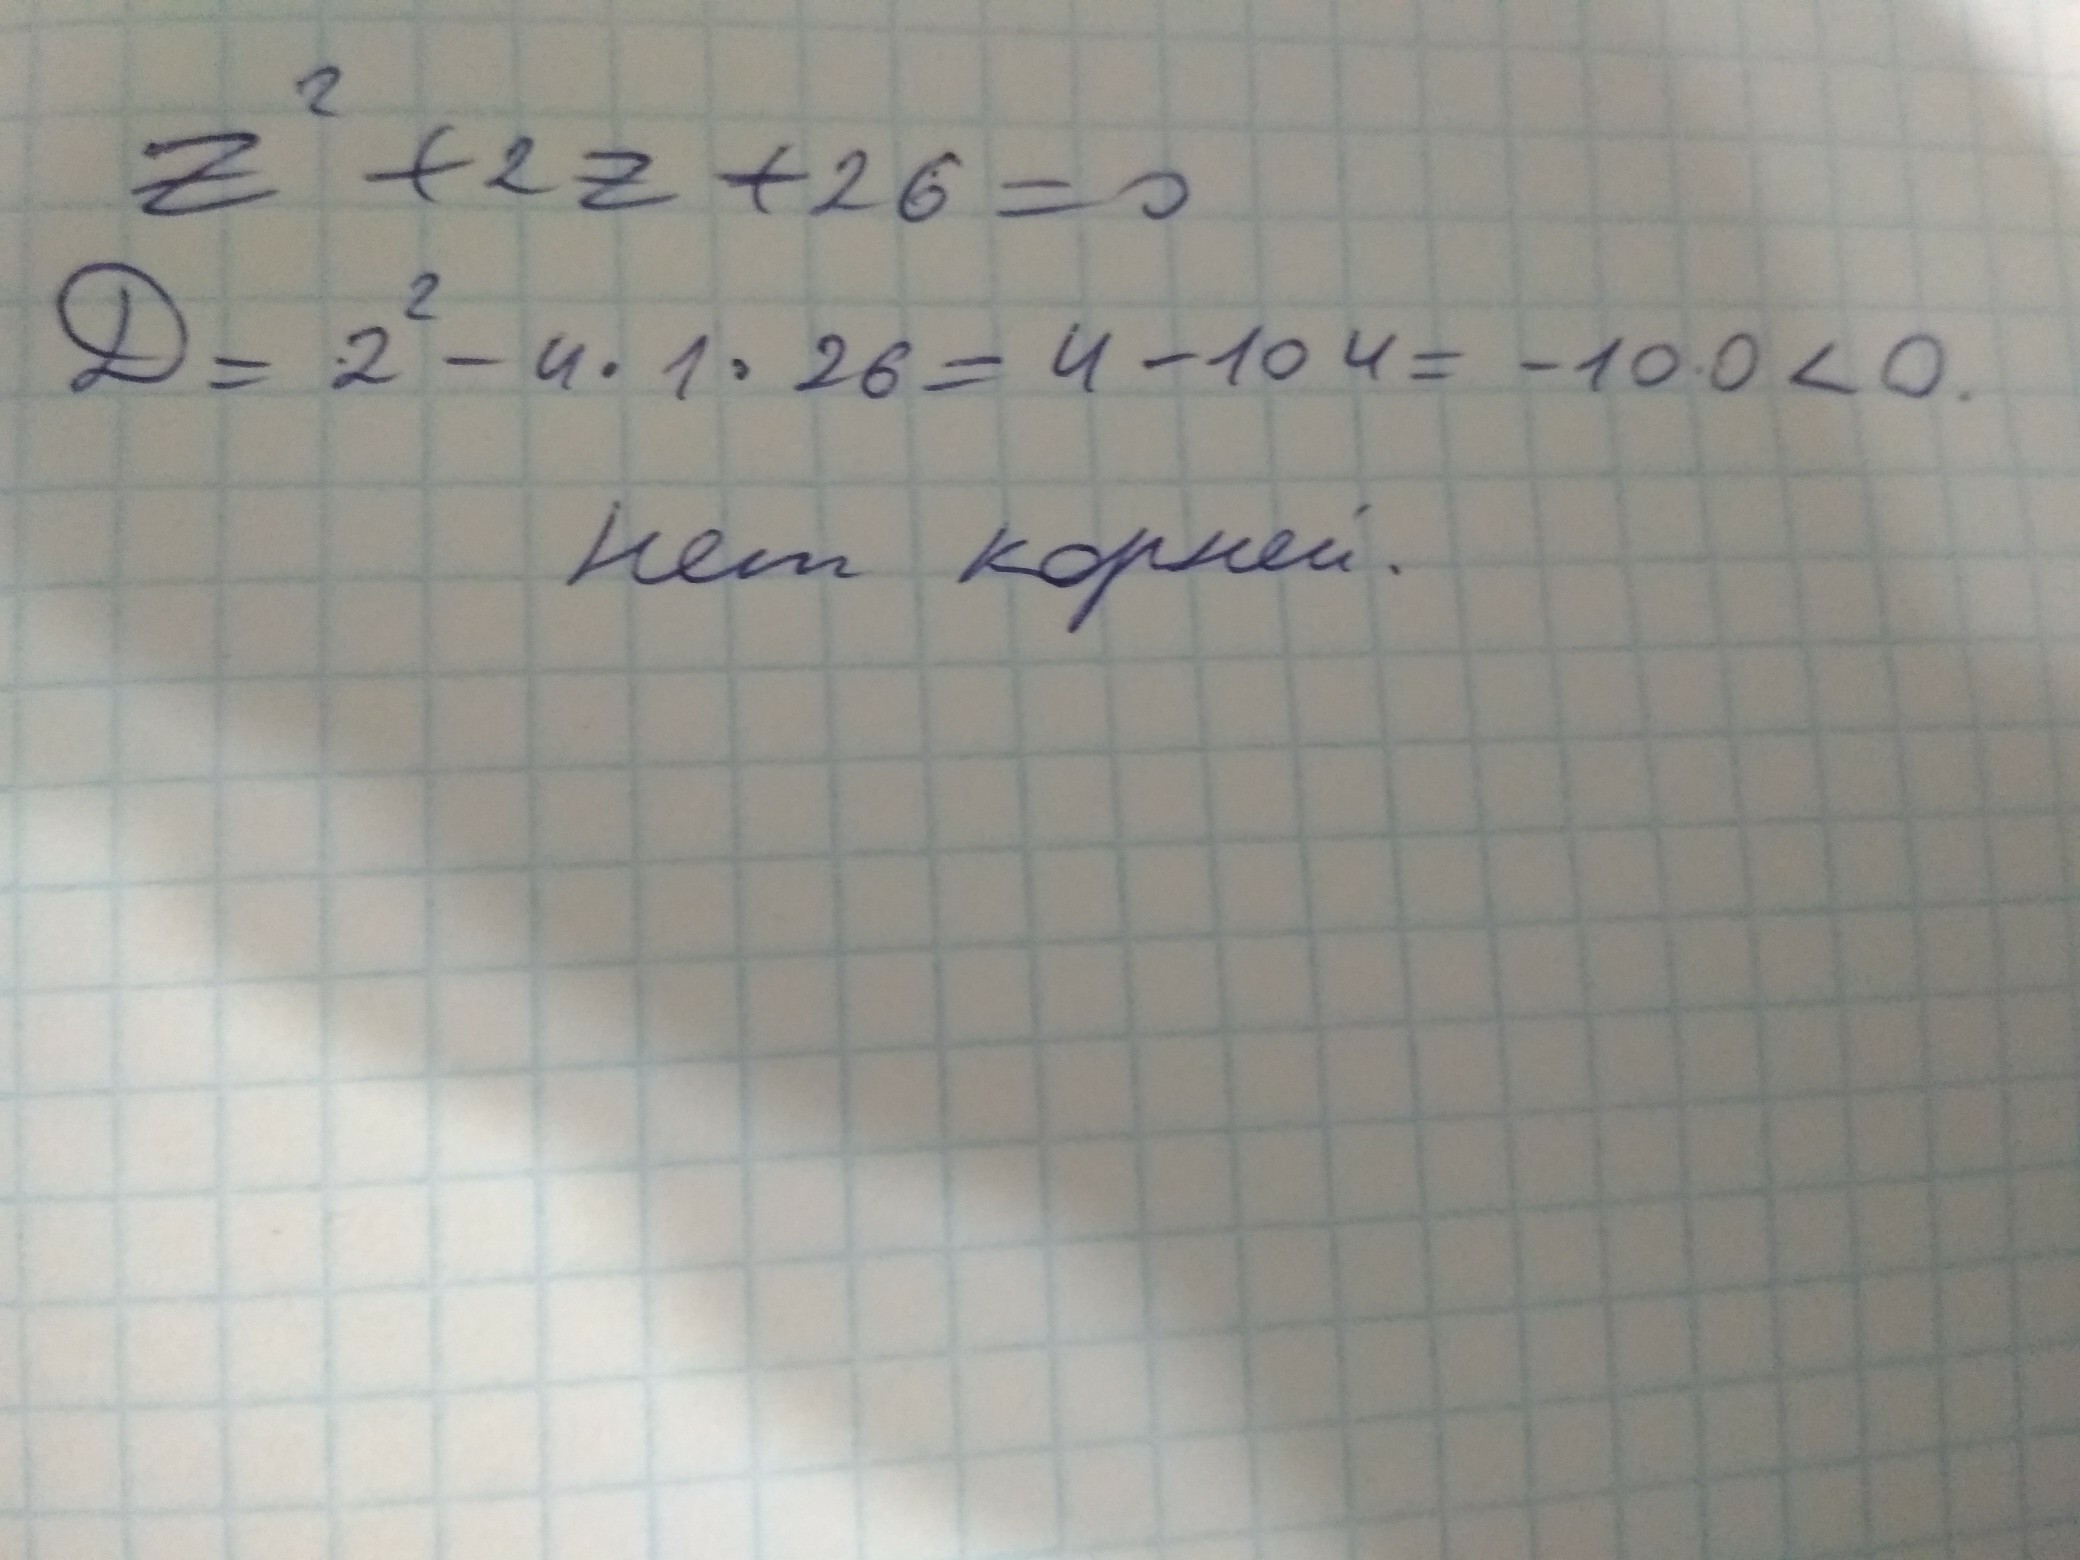 z² + 2z + 26 = 0
D = 2² - 4 · 1 · 26 = 4 - 104 = -100 < 0.
Нет корней.